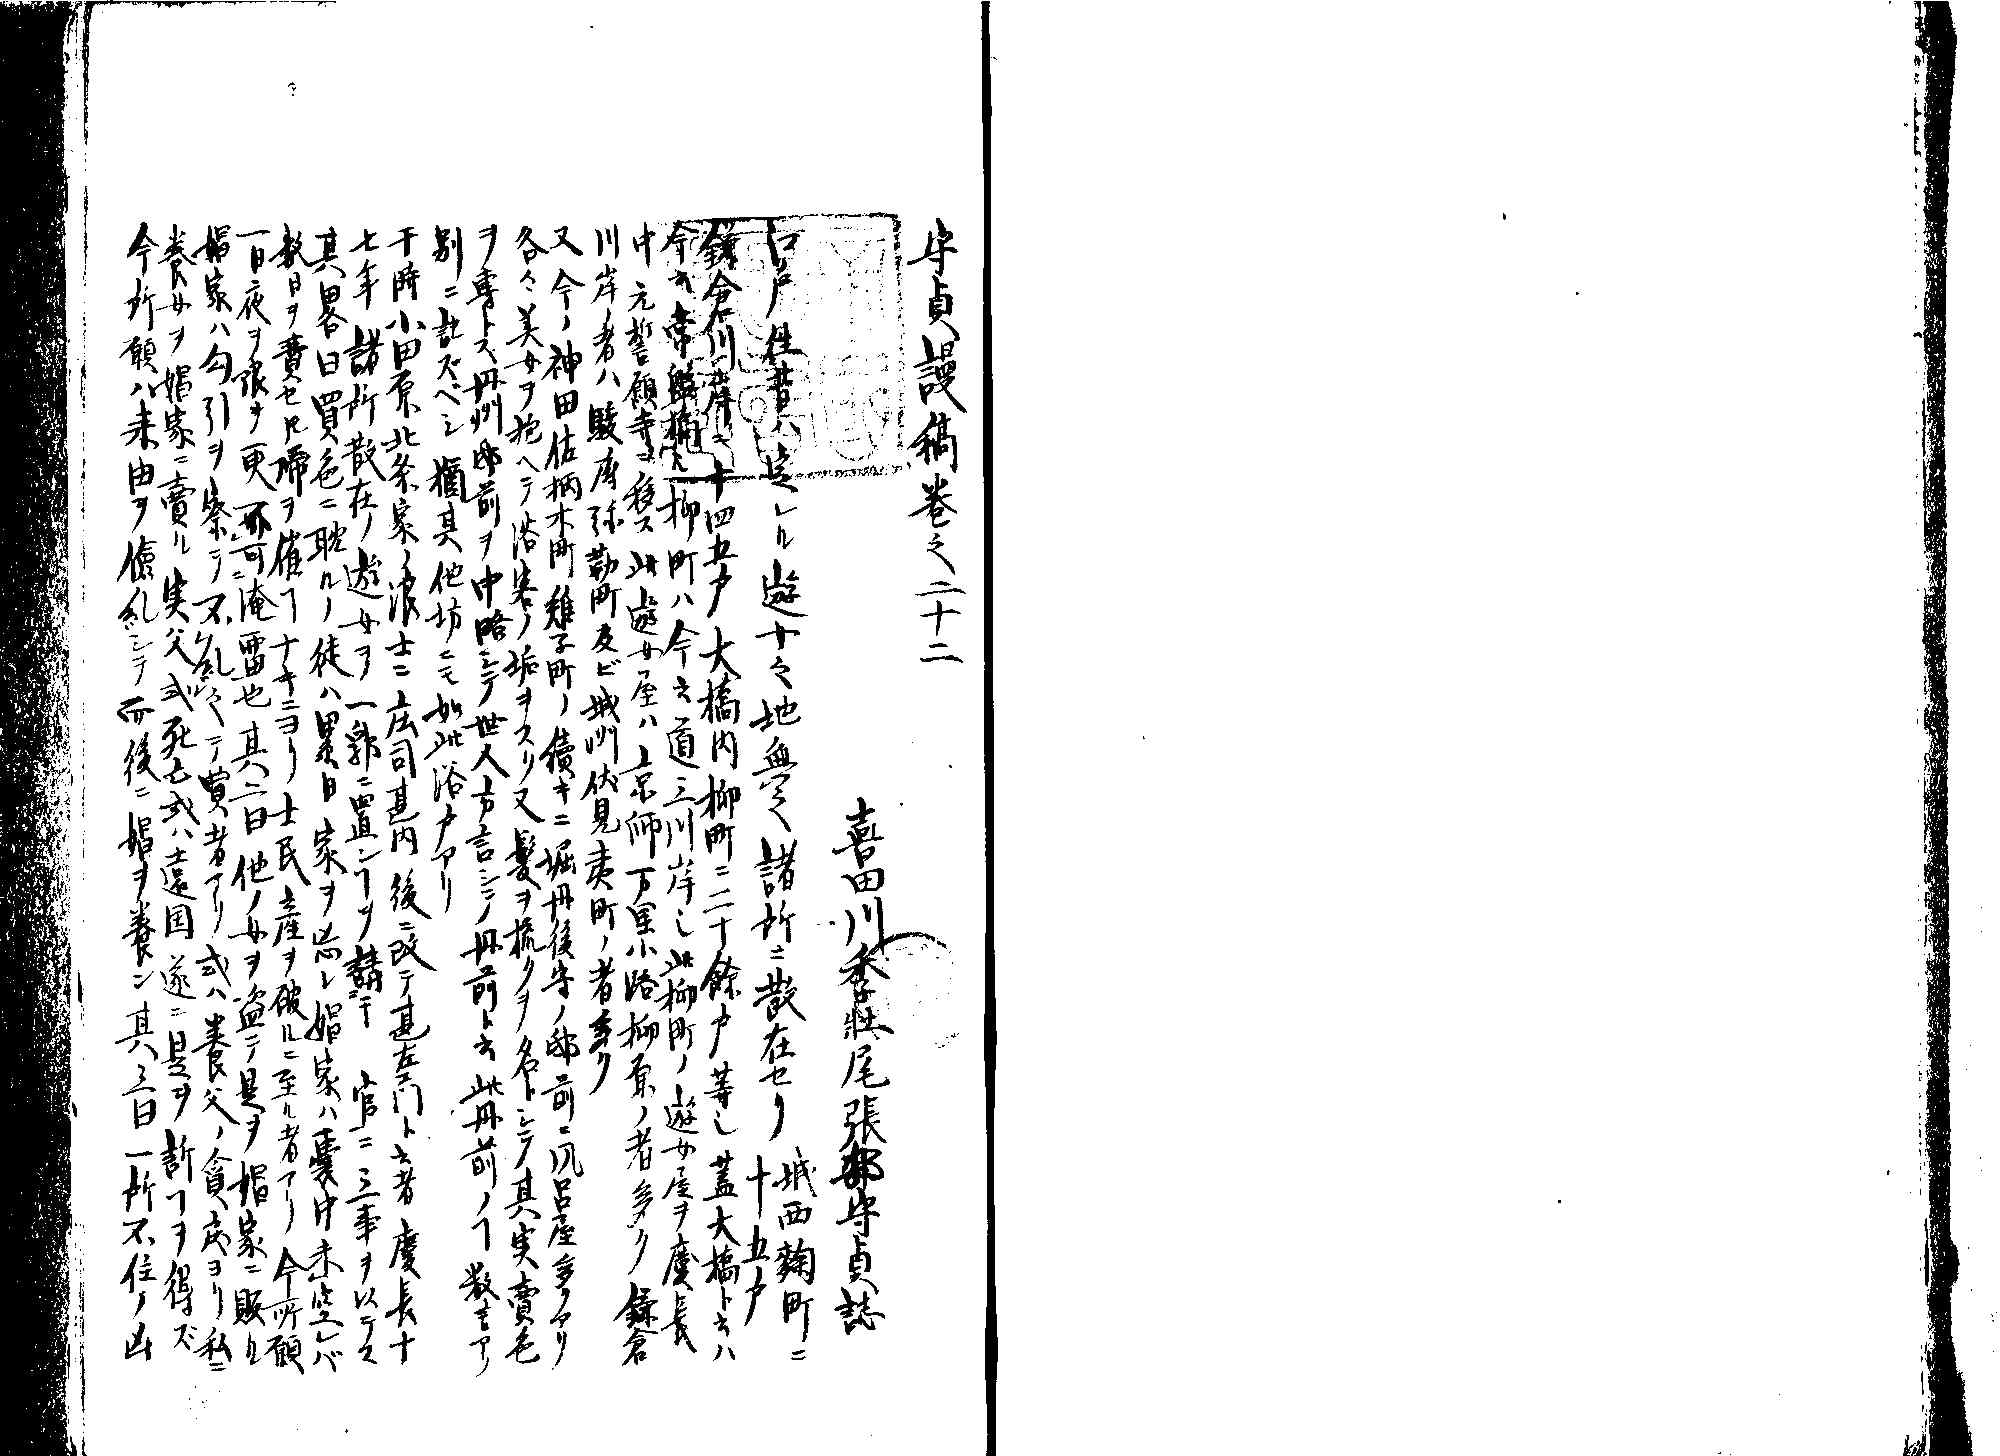 守貞謾稿卷之二十二
喜田川季莊尾張部守貞誌
江戸往昔ハ定レル遊女之地無之諸所ニ散在セリ 城西麹町ニ
十五戸
鎌倉川岸ニ十四五戸大橋内柳町ニ二十餘戸等也蓋大橋ト云ハ
今云常盤橋也柳町ハ今云道三川岸也此柳町ノ遊女屋ヲ慶長
中元誓願寺ニ移ス此遊女屋ハ京師万里小路柳原ノ者多ク鎌倉
川岸ノ者ハ駿府弥勒町及ビ城州伏見夷町ノ者多ク
又今ノ神田佐柄木町雉子町ノ續キニ堀丹後守ノ邸前ニ風呂屋多クアリ
各々美女ヲ抱ヘテ浴客ノ垢ヲスリ又髪ヲ梳クヲ名トシテ其実賣色
ヲ専トス丹州邸前ヲ中略シテ世人方言シテ丹前ト云此丹前ノヿ数書アリ
別ニ註スベシ猶其他坊ニモ如此浴戸アリ
于時小田原北条家ノ浪士ニ庄司甚内後ニ改テ甚左ヱ門ト云者慶長十
七年諸所散在ノ遊女ヲ一郭ニ置ンヿヲ 官ニ三事ヲ以テス
其畧曰買色ニ耽ルノ徒ハ累日家ヲ忘レ娼家ハ嚢中未空レバ
数日ヲ費セ𪜈帰ヲ催ヿナキニヨリ士民産ヲ破ルニ至ル者アリ今所願
一日夜ヲ限ヲ更 不可淹留也其二曰他ノ女ヲ盗テ是ヲ娼家ニ販ル
娼家ハ勾引ヲ察シテ不乱之テ買者アリ或ハ養父ノ貧戸ヨリ私ニ
養女ヲ娼家ニ賣ル実父或死亡或ハ遠国遂ニ是ヲ訴ヿヲ得ズ
今所願ハ来由ヲ乱シテ而後ニ娼ヲ養ン其三曰一所不住ノ凶